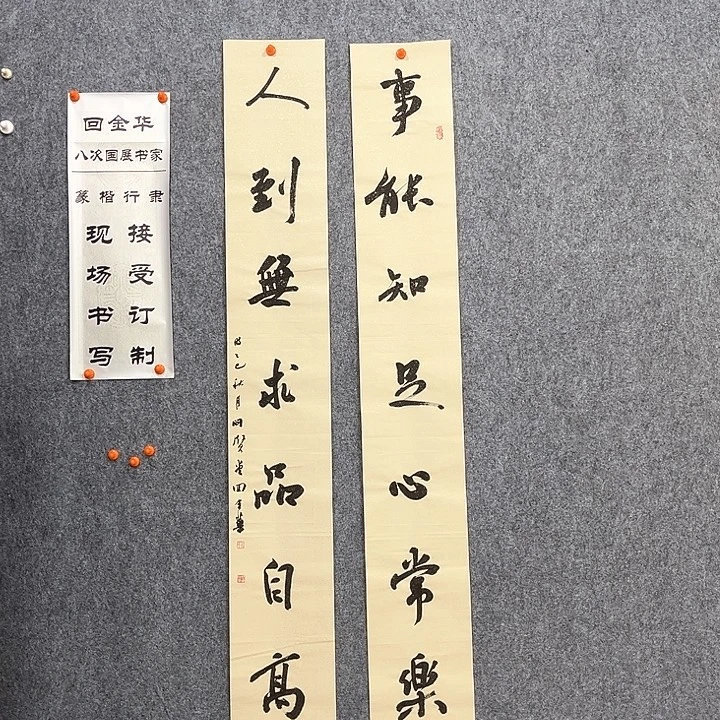 事能知足心常樂
人到無求品自高
时乙巳秋月明賢堂回金華
回金华
八次国展书家
篆楷行隶
接受订制
现场书写